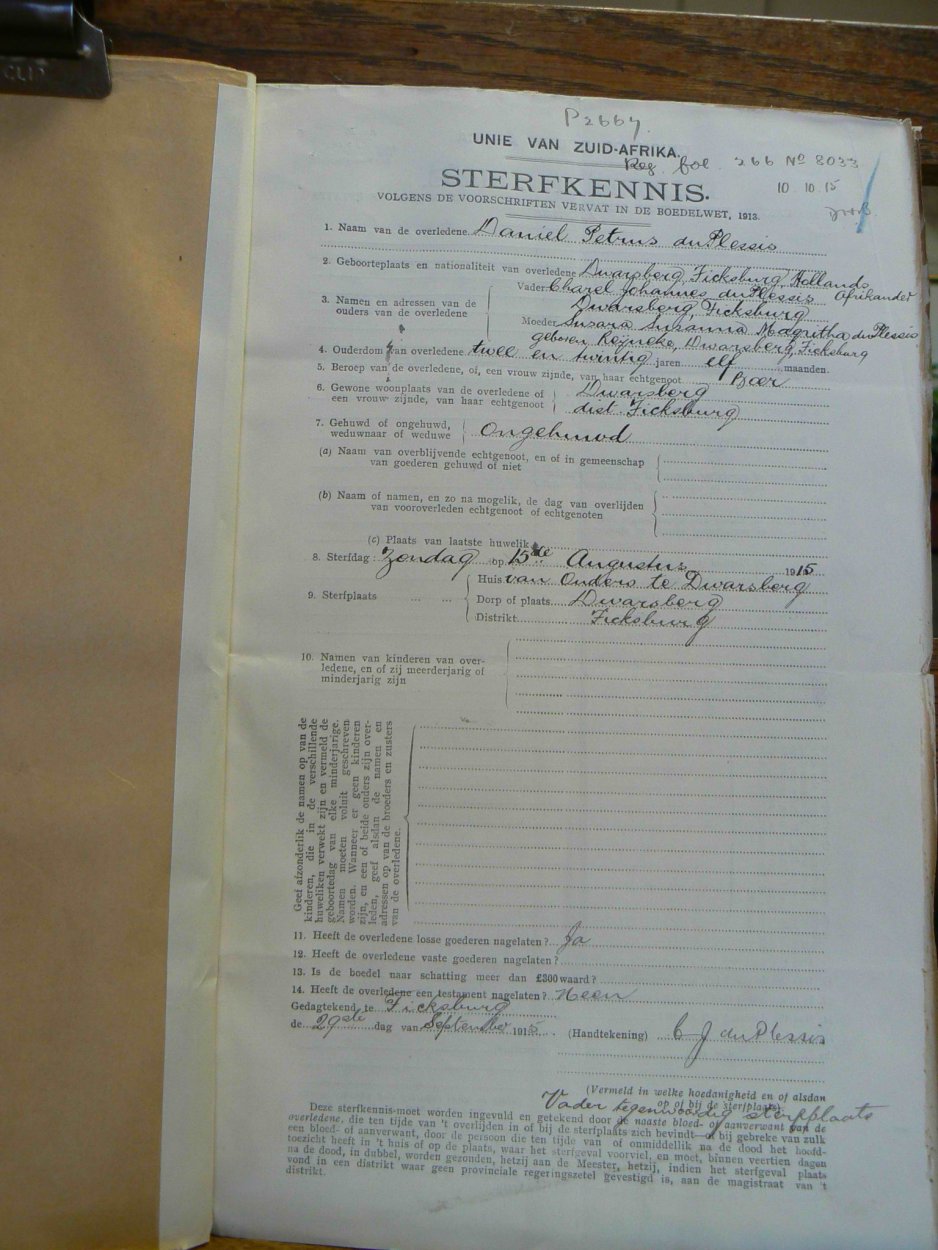 P2667.
UNIE VAN ZUID-AFRIKA.
Reg fol 266 No 8033
10.10.15
STERFKENNIS.
VOLGENS DE VOORSCHRIFTEN VERVAT IN DE BOEDELWET, 1913.
1. Naam van de overledene Daniel Petrus du Plessis
2. Geboorteplaats en nationaliteit van overledene Dwarsberg, Ficksburg, Hollands Afrikander
3. Namen en adressen van de ouders van de overledene
Vader Charel Johannes du Plessis
Dwarsberg, Ficksburg
Moeder Susara Susanna Magritha du Plessis
geboren Reyneke, Dwarsberg, Ficksburg
4. Ouderdom van overledene twee en twintig jaren elf maanden.
5. Beroep van de overledene, of, een vrouw zijnde, van haar echtgenoot Boer
6. Gewone woonplaats van de overledene of Dwarsberg
een vrouw zijnde, van haar echtgenoot dist. Ficksburg
7. Gehuwd of ongehuwd, weduwnaar of weduwe Ongehuwd
(a) Naam van overblijvende echtgenoot, en of in gemeenschap
van goederen gehuwd of niet
(b) Naam of namen, en zo na mogelik, de dag van overlijden
van vooroverleden echtgenoot of echtgenoten
(c) Plaats van laatste huwelik
8. Sterfdag: Zondag op 15de Augustus 1915
9. Sterfplaats ... ...
Huis van Ouders te Dwarsberg
Dorp of plaats Dwarsberg
Distrikt Ficksburg
10. Namen van kinderen van over-
ledene, en of zij meerderjarig of
minderjarig zijn
Geef afzonderlik de namen op van de
kinderen, die in de verschillende
huweliken verwekt zijn en vermeld de
geboortedag van elke minderjarige.
Namen moeten voluit geschreven
worden. Wanneer er geen kinderen
zijn, en een of beide ouders zijn over-
leden, geef alsdan de namen en
adressen op van de broeders en zusters
van de overledene.
11. Heeft de overledene losse goederen nagelaten? Ja
12. Heeft de overledene vaste goederen nagelaten?
13. Is de boedel naar schatting meer dan £300 waard?
14. Heeft de overledene een testament nagelaten? Neen
Gedagtekend te Ficksburg
de 29ste dag van September 1915 (Handtekening) C J du Plessis
(Vermeld in welke hoedanigheid en of alsdan
op of bij de sterfplaats)
Vader tegenwoordig sterfplaats
Deze sterfkennis moet worden ingevuld en getekend door de naaste bloed- of aanverwant van de
overledene, die ten tijde van 't overlijden in of bij de sterfplaats zich bevindt—of bij gebreke van zulk
een bloed- of aanverwant, door de persoon die ten tijde van of onmiddellik na de dood het hoofd-
toezicht heeft in 't huis of op de plaats, waar het sterfgeval voorviel, en moet, binnen veertien dagen
na de dood, in dubbel, worden gezonden, hetzij aan de Meester, hetzij, indien het sterfgeval plaats
vond in een distrikt waar geen provinciale regeringszetel gevestigd is, aan de magistraat van 't
distrikt.